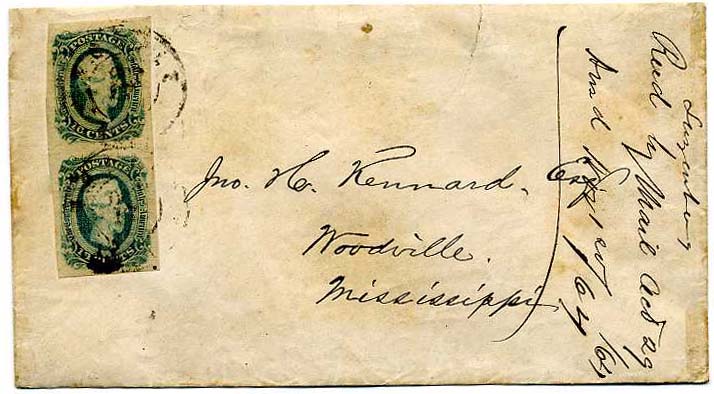 POSTAGE
10 CENTS
POSTAGE
TEN CENTS
Jno. H. Kennard. Esq
Woodville.
Mississippi
Recd by Mail Oct 29 /64
Ansd 20 /64